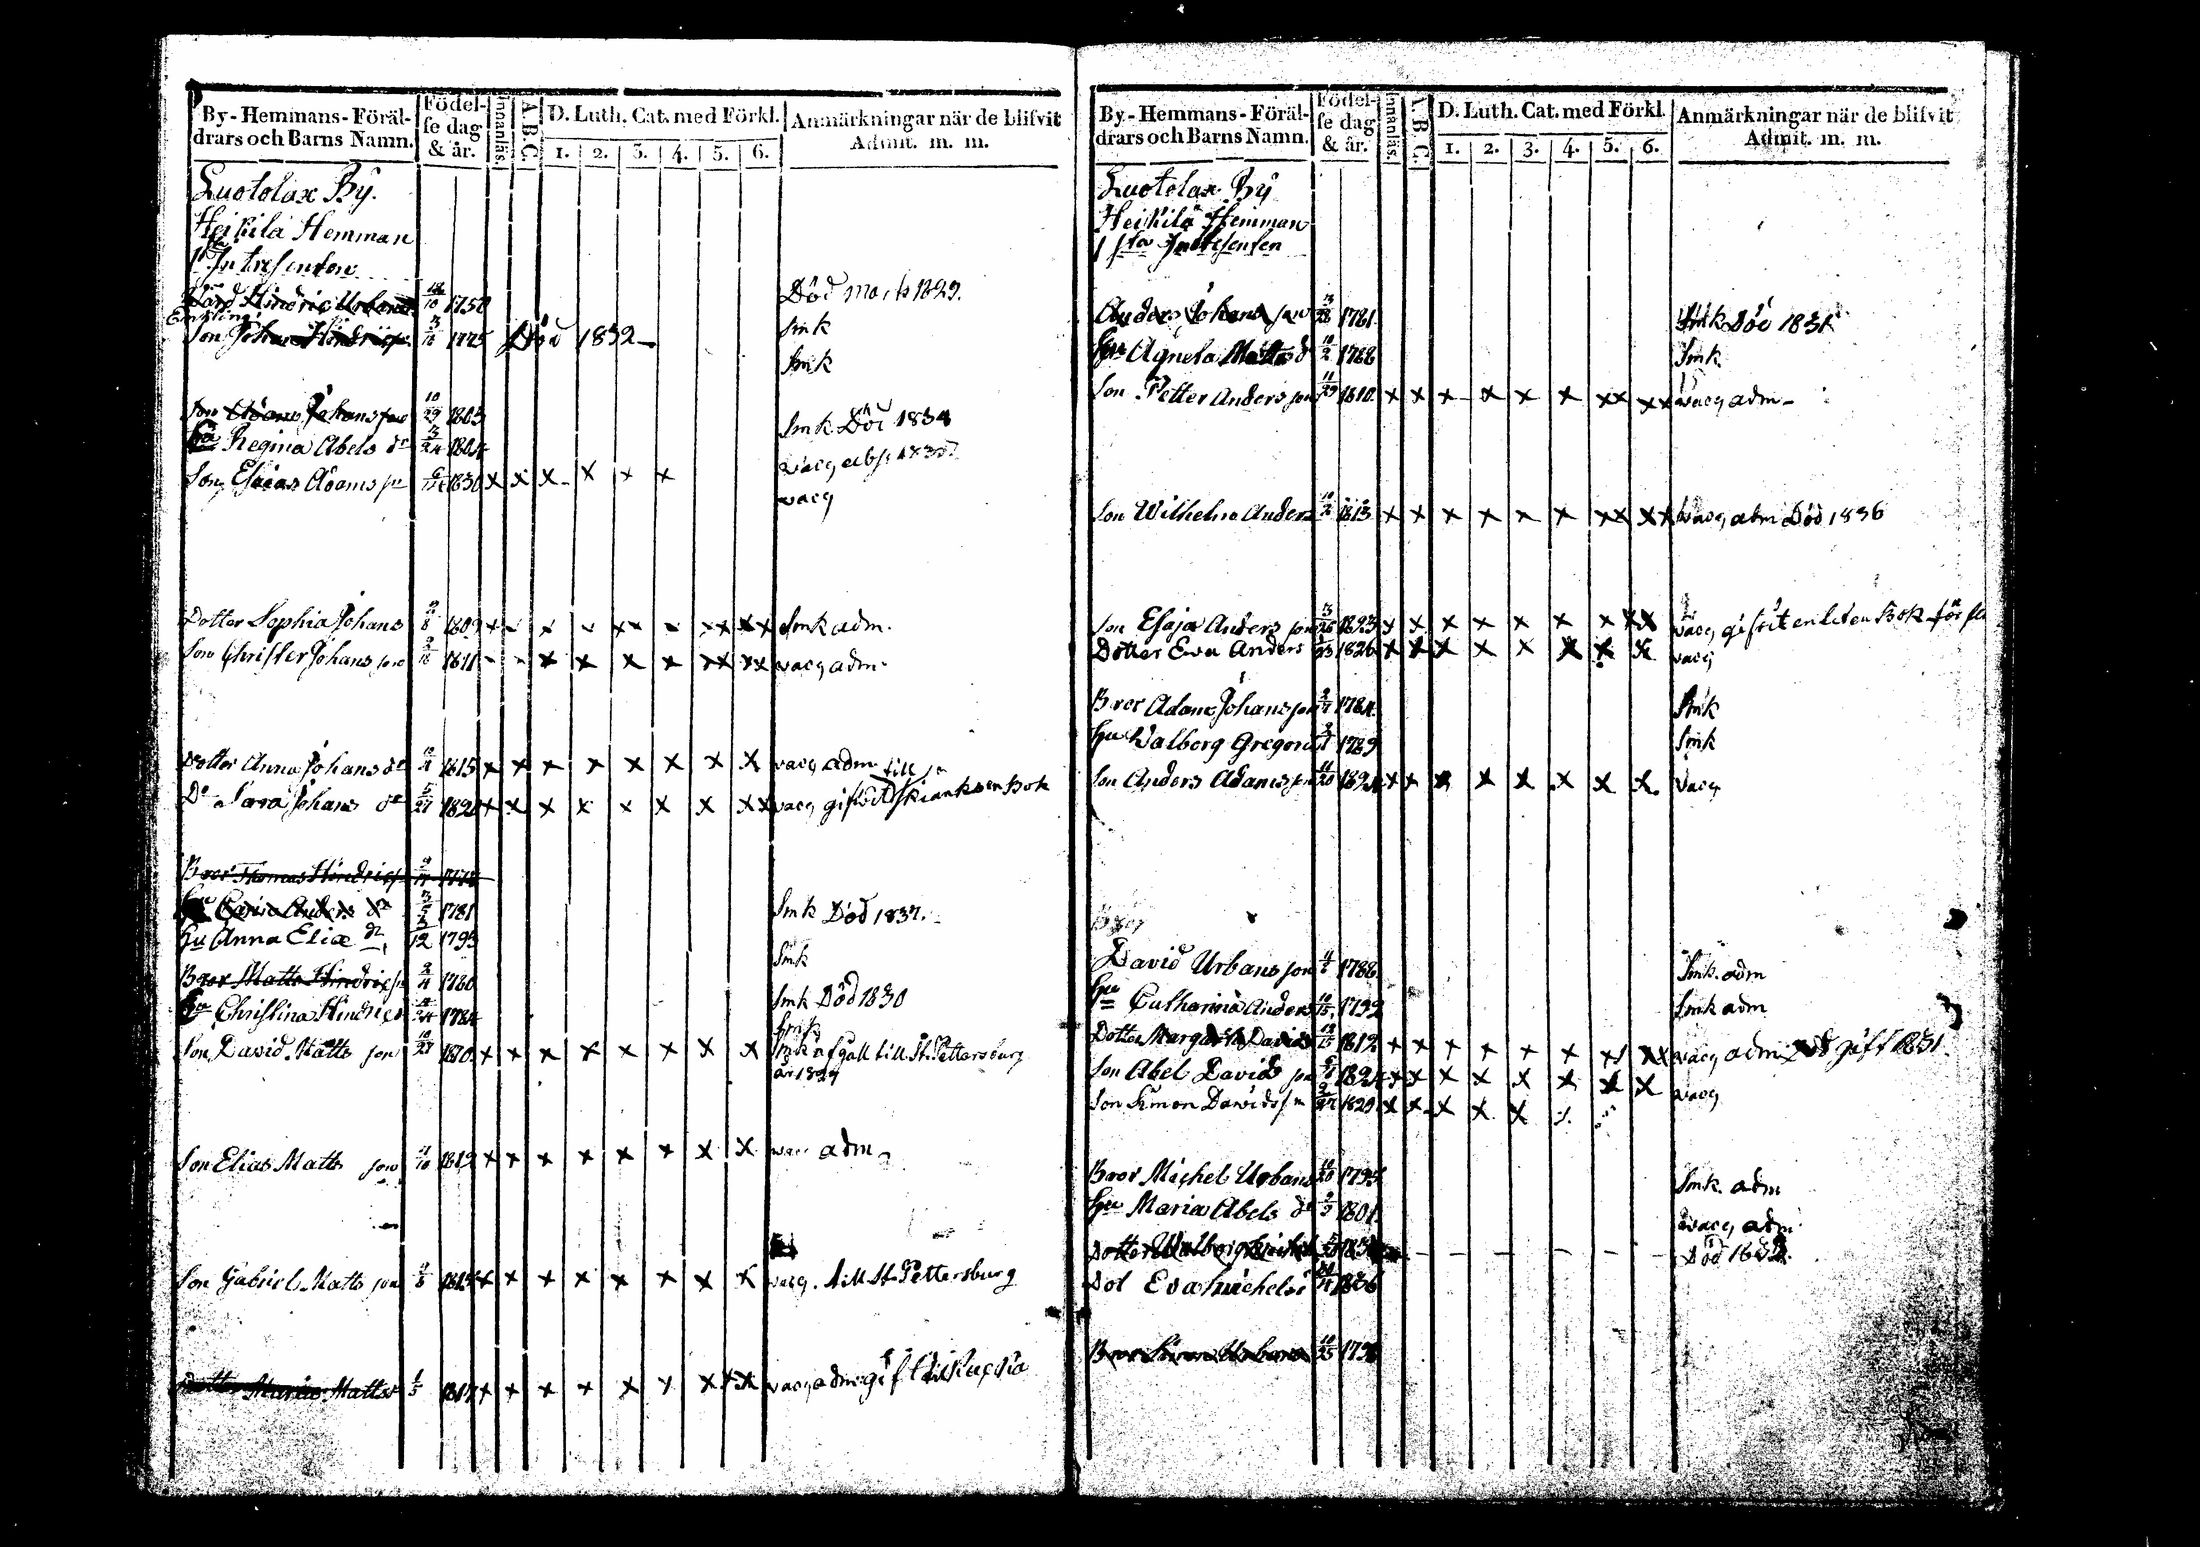 By-Hemmans-Föräl-
drars och Barns Namn.
Födel-
se dag
& år.
Innanläs.
A.B.C.
D. Luth. Cat. med Förkl.
1. 2. 3. 4. 5. 6.
Anmärkningar när de blifvit
Admit. m. m.
Luotolax By.
Heikilä Hemman
1sta Intresenten
Hindric 1750 Död 1829.
Enkling
Son Johan Hindricss. 1775 Död 1832 Smk
Smk
Son Adam Johans son 10/29 1803 Smk Död 1834
Hu Regina Abels dr 3/24 1804
Son Esaias Adams sn 1830 x x x x x x vacg
Dotter Sophia Johans 1809 Smk adm.
Son Christer Johans son 1811 x x x x xx xx vacg adm.
Dotter Anna Johans dr 1815 x x x x x x x x vacg adm
Dr Sara Johans dr 5/27 1824 x x x x x x x xx vacg gift till Skianks en Bok
Bror Thomas Hindricss.
Hu Carin Anders dr 1781 Smk Död 1837.
Hu Anna Eliæ dr 12 1795 Smk
Bror Matts Hindricss. 1780 Smk Död 1830
Hu Christina Hindrics 1784 Smk
Son David Matts son 10/27 1810 x x x x x x x x Smk afgått till St. Pettersburg
år 1829
Son Elias Matts son 1812 x x x x x x x x vac adm
Son Gabriel Matts son x x x x x x x x vacg. till St. Pettersburg
Dotter Maria Matts 1817 x x x x x x xx vacg adm gift
By-Hemmans-Föräl-
drars och Barns Namn.
Födel-
se dag
& år.
Innanläs.
A.B.C.
D. Luth. Cat. med Förkl.
1. 2. 3. 4. 5. 6.
Anmärkningar när de blifvit
Admit. m. m.
Luotolax By
Heikilä Hemman
1sta Intresenten
Anders Johans son 1781 Smk Död 1831
Hu Agneta Matts dr 10/2 1788 Smk
Son Petter Anders son 11/29 1810 x x x x x x xx xx vacg adm
Son Wilhelm Anders 1813 x x x x x x xx xx vacg adm Död 1836
Son Esaja Anders son 1823 x x x x x x x xx vacg gifvit en liten Bok för
Dotter Eva Anders 1826 x x x x x x x x vacg
Bror Adam Johans son 1784 Smk
Hu Walborg Gregori 1789 Smk
Son Anders Adams sn 11/20 1824 x x x x x x x x vacg
David Urbans son 1788 Smk. adm
Hu Catharina Anders 1792 Smk adm
Dotter Margaretha Davids 1812 x x x x x x xx xx vacg adm gift 1831.
Son Abel Davids sn 1824 x x x x x x x x vacg
Son Simon Davids sn 1829 x x x x x
Bror Michel Urbans 10/20 1795 Smk. adm
Hu Maria Abels dr 1801 vacg adm
Dotter Walborg Michels Död 1832.
Dot Eva Michels 1836
Bror Simon Urbans 10/25